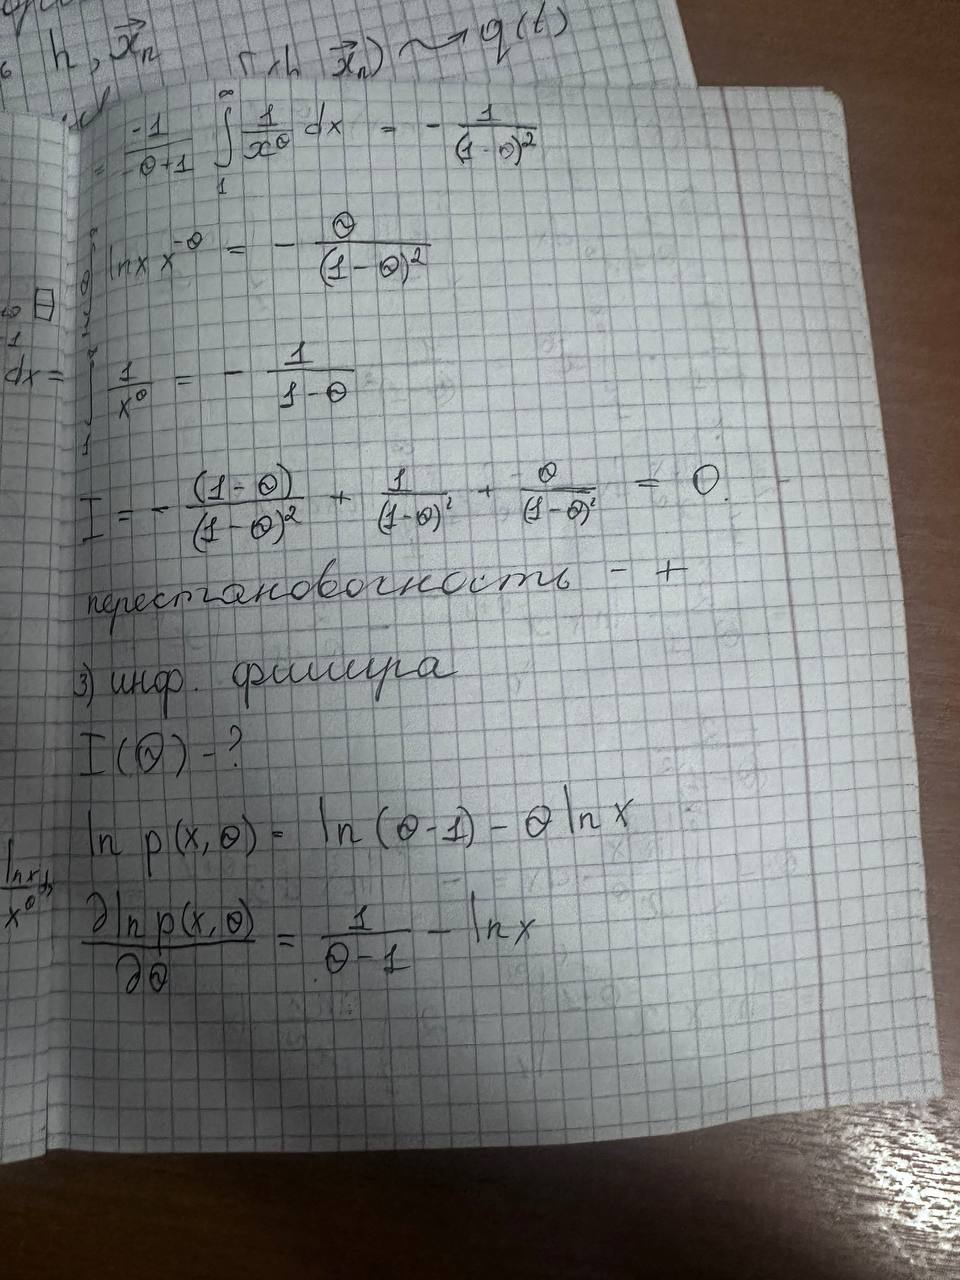 h, x⃗ₙ x⃗ₙ) ⇝ q(t)
= -1/(-θ+1) ∫₁^∞ 1/x^θ dx = - 1/(1-θ)²
ln x x^(-θ) = - θ/(1-θ)²
∫₁ 1/x^θ = - 1/(1-θ)
dx =
I = - (1-θ)/(1-θ)² + 1/(1-θ)² + θ/(1-θ)² = 0.
перестановочность - +
3) инф. фишера
I(θ) - ?
ln p(x, θ) = ln (θ-1) - θ ln x
∂ ln p(x, θ)/∂θ = 1/(θ-1) - ln x